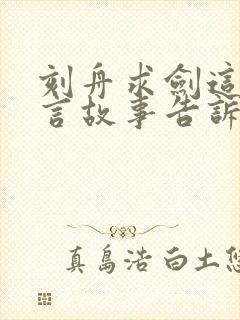 刻舟求劍這
言故事告訴
真島浩白土悠